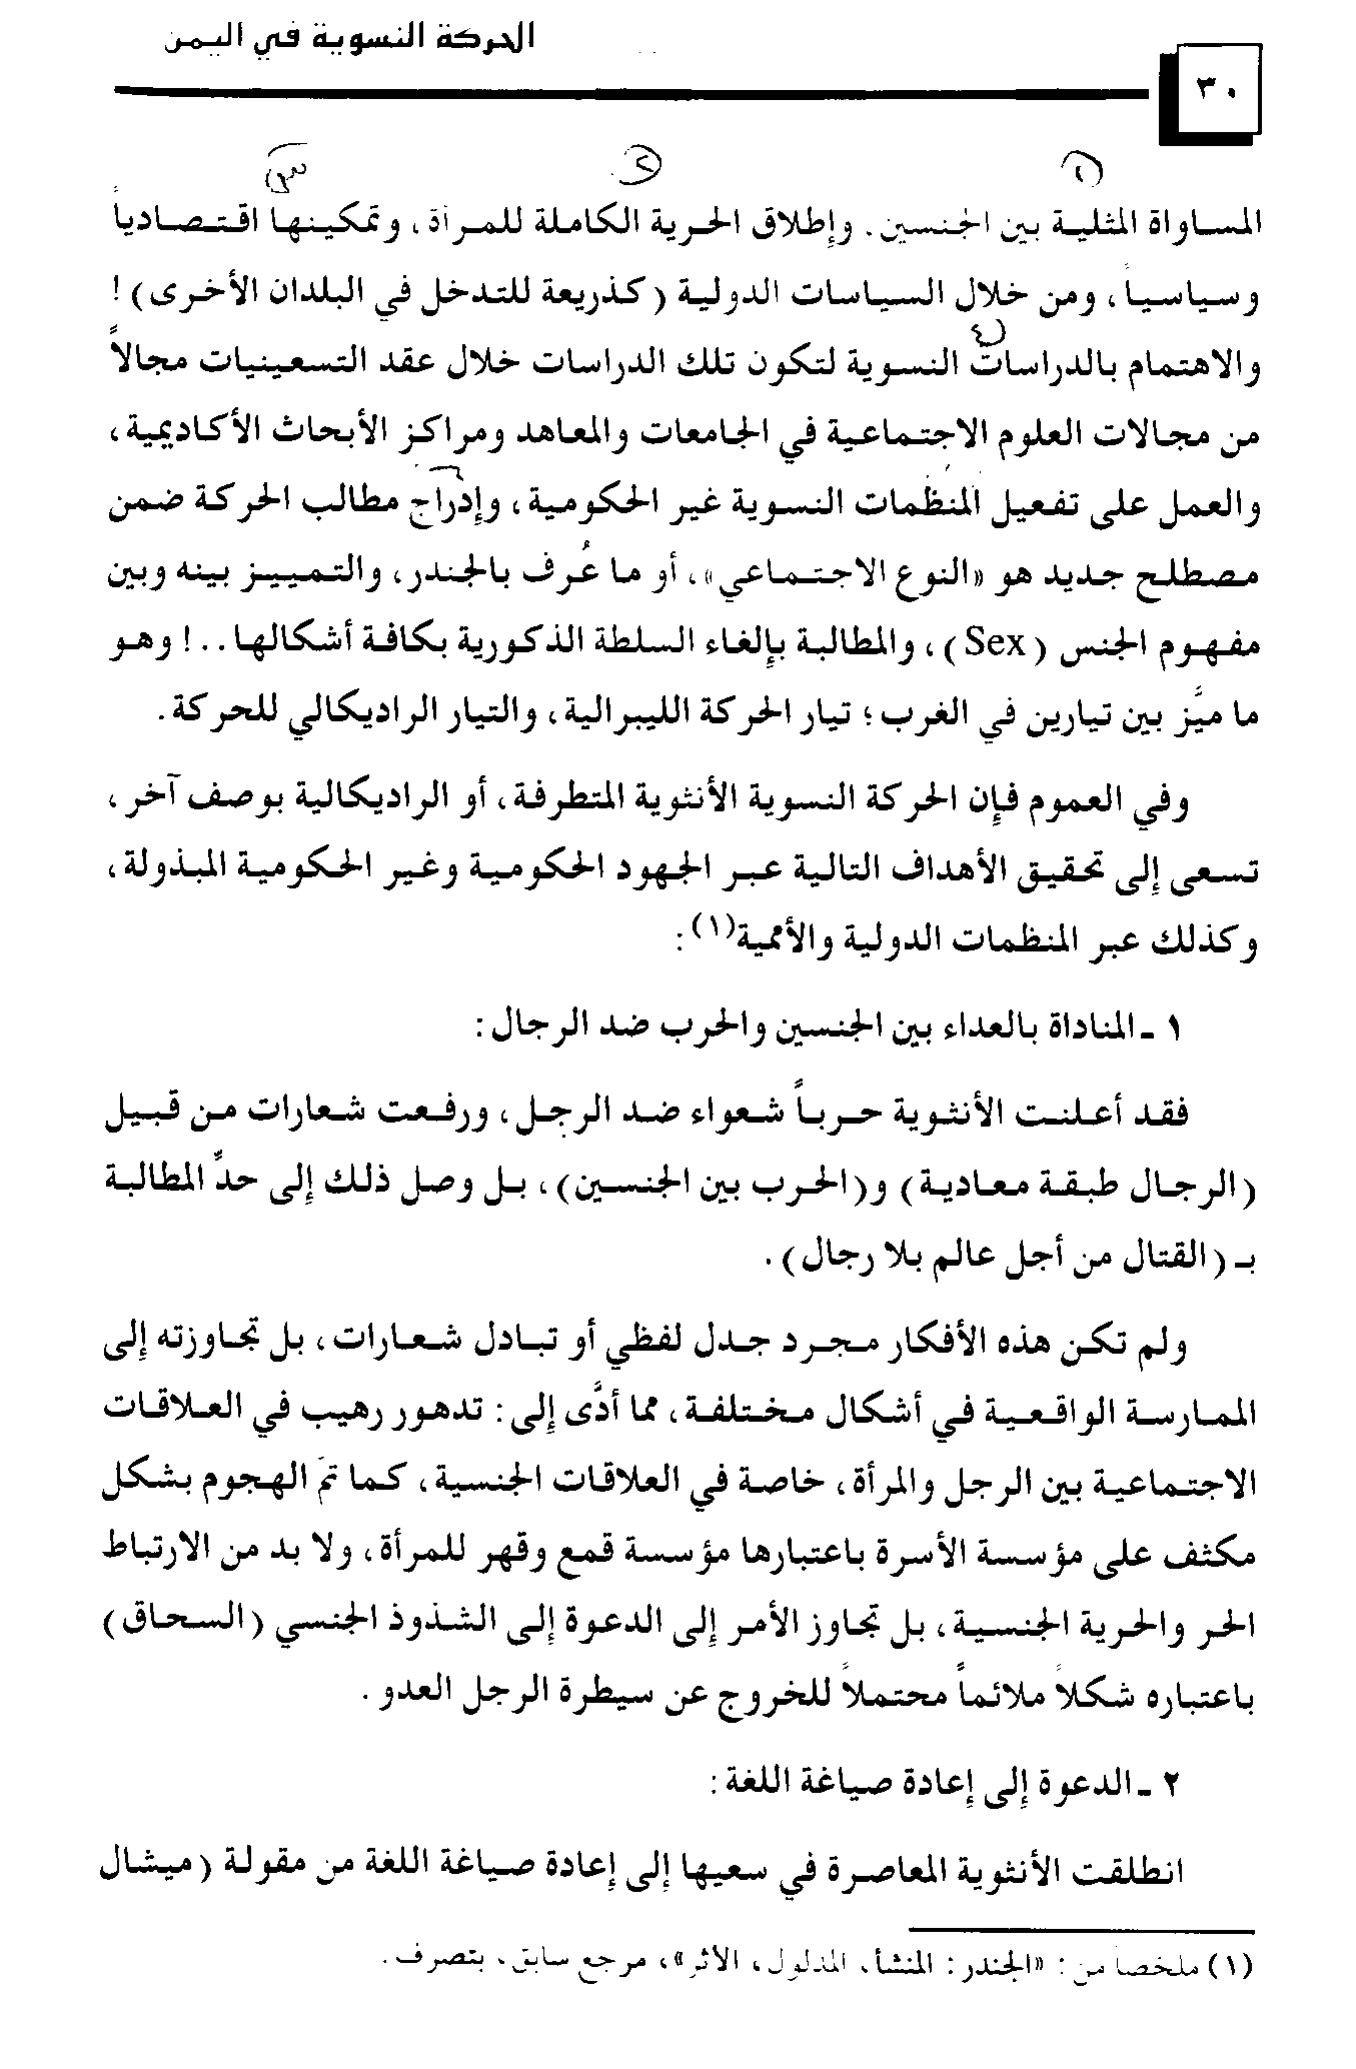 الحركة النسوية في اليمن
٣٠
١ ٢ ٣
المساواة المثلية بين الجنسين. وإطلاق الحرية الكاملة للمرأة، وتمكينها اقتصادياً
وسياسياً، ومن خلال السياسات الدولية (كذريعة للتدخل في البلدان الأخرى)!
٤
والاهتمام بالدراسات النسوية لتكون تلك الدراسات خلال عقد التسعينيات مجالاً
من مجالات العلوم الاجتماعية في الجامعات والمعاهد ومراكز الأبحاث الأكاديمية،
والعمل على تفعيل المنظمات النسوية غير الحكومية، وإدراج مطالب الحركة ضمن
مصطلح جديد هو «النوع الاجتماعي»، أو ما عُرف بالجندر، والتمييز بينه وبين
مفهوم الجنس (Sex)، والمطالبة بإلغاء السلطة الذكورية بكافة أشكالها..! وهو
ما ميَّز بين تيارين في الغرب؛ تيار الحركة الليبرالية، والتيار الراديكالي للحركة.
وفي العموم فإن الحركة النسوية الأنثوية المتطرفة، أو الراديكالية بوصف آخر،
تسعى إلى تحقيق الأهداف التالية عبر الجهود الحكومية وغير الحكومية المبذولة،
وكذلك عبر المنظمات الدولية والأممية(١):
١ ـ المناداة بالعداء بين الجنسين والحرب ضد الرجال:
فقد أعلنت الأنثوية حرباً شعواء ضد الرجل، ورفعت شعارات من قبيل
(الرجال طبقة معادية) و(الحرب بين الجنسين)، بل وصل ذلك إلى حدِّ المطالبة
بـ (القتال من أجل عالم بلا رجال).
ولم تكن هذه الأفكار مجرد جدل لفظي أو تبادل شعارات، بل تجاوزته إلى
الممارسة الواقعية في أشكال مختلفة، مما أدَّى إلى: تدهور رهيب في العلاقات
الاجتماعية بين الرجل والمرأة، خاصة في العلاقات الجنسية، كما تمَ الهجوم بشكل
مكثف على مؤسسة الأسرة باعتبارها مؤسسة قمع وقهر للمرأة، ولا بد من الارتباط
الحر والحرية الجنسية، بل تجاوز الأمر إلى الدعوة إلى الشذوذ الجنسي (السحاق)
باعتباره شكلاً ملائماً محتملاً للخروج عن سيطرة الرجل العدو.
٢ ـ الدعوة إلى إعادة صياغة اللغة:
انطلقت الأنثوية المعاصرة في سعيها إلى إعادة صياغة اللغة من مقولة (ميشال
(١) ملخصاً من: «الجندر: المنشأ، المدلول، الأثر»، مرجع سابق، بتصرف.